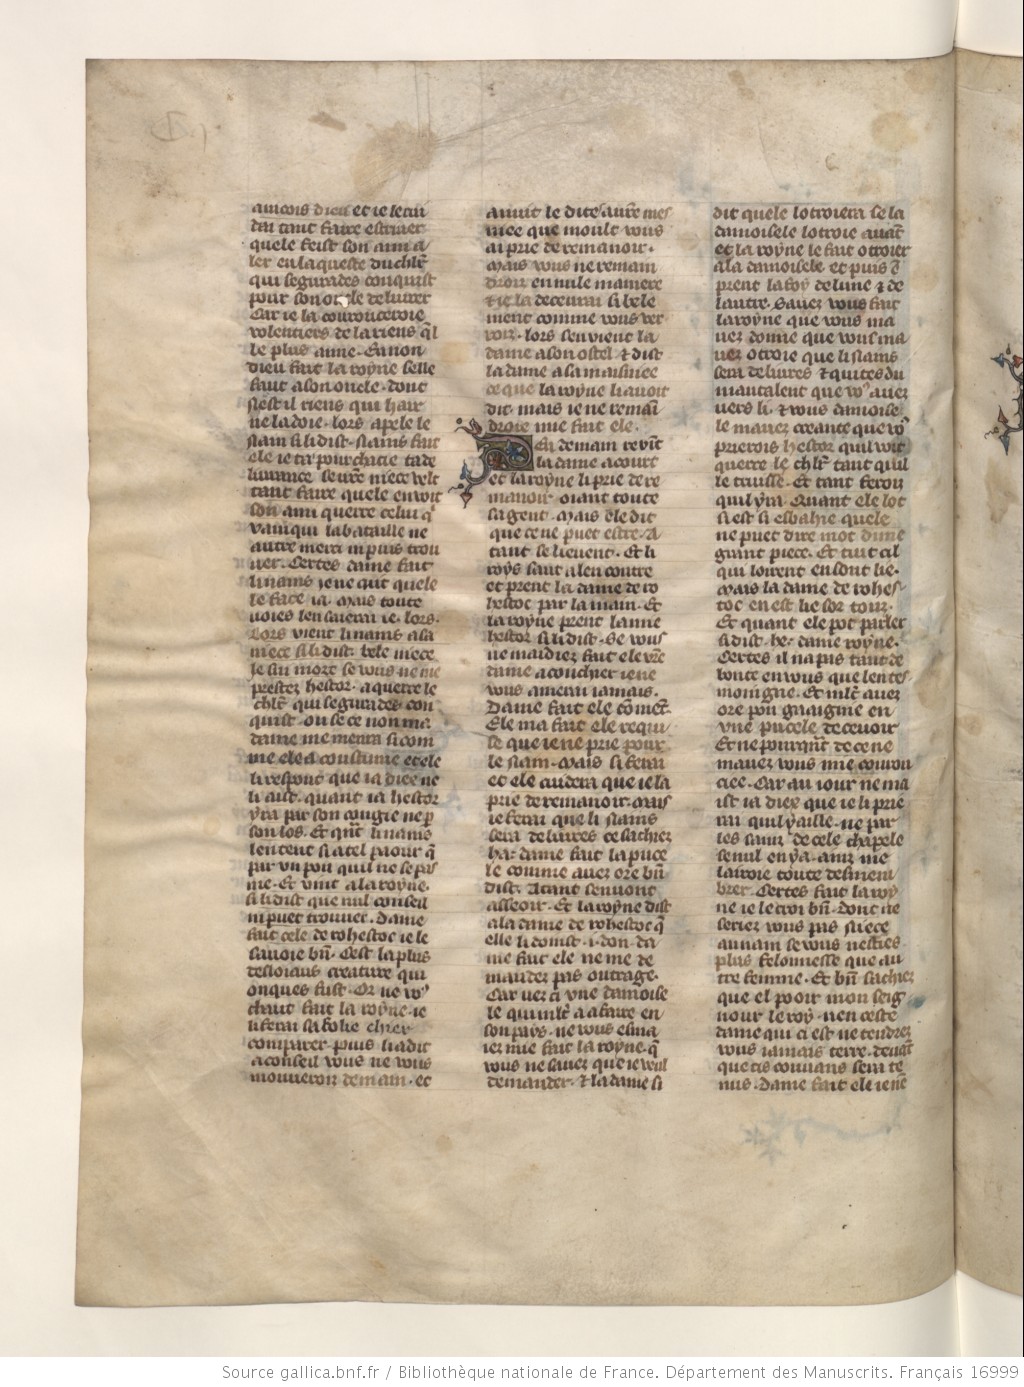 amcois dieu et ie le cui
dai tant faire estriuer
quele feist son ami a
ler en la queste du chlr̄
qui segurades conquist
pour son oncle deliurer
Car ie la courouceroie
volentiers de la riens q̄l
le plus aime. En non
dieu fait la royne selle
faut a son oncle. dont
nest il riens qui hair
ne la doie. lors apele le
nain si li dist. nains fait
ele ie tai pourchacie ta de
liurance se ure niece velt
tant faire quele enuoit
son ami querre celui qͥ
vainqui la bataille ne
autre merci ni puis trou
uer. Certes dame fait
li nains ie ne cuit quele
le face ia. Mais toute
uoies lensaierai ie. lors.
Lors vient li nains a sa
niece si li dist. bele niece
ie sui mors se vous ne me
prestez hestor. a querre le
chlr̄ qui segurades con
quist. ou se ce non ma
dame me menra si com
me ele a coustume et ele
li respont que ia diex ne
li aist. quant ia hestor
yra par son congie ne p̄
son los. Et qn̄t li nains
lentent si a tel paour q̄
par un pou quil ne se pas
me. Et vint a la royne.
si li dist que nul conseil
ni puet trouuer. Dame
fait cele de rohestoc ie le
sauoie bn̄. Cest la plus
desloiaus creature qui
onques fust. Or ne vo9
chaut fait la royne. ie
li ferai sa folie chier
comparer. puis li a dit
a conseil vous ne vous
mouueroiz demain. et
anuit le dites a ure mes
niee que moult vous
ai prie de remanoir.
Mais vous ne remain
droiz en nule maniere
et ie la deceurai si bele
ment comme vous ver
roiz. lors sen vient la
dame a son ostel et dist
la dame a sa maisniee
ce que la royne li auoit
dit. mais ie ne remain
droie mie fait ele.
Len demain reuīt
la dame a court
et la royne li prie de re
manoir oiant toute
sa gent. Mais ele dit
que ce ne puet estre. A
tant se lieuent. Et li
roys saut a lencontre
et prent la dame de ro
hestoc par la main. Et
la royne prent lamie
hestor si li dist. Se vous
ne maidiez fait ele ure
dame a couchier ie ne
vous amerai iamais.
Dame fait ele cōment.
Ele ma fait ele requi
se que ie ne prie pour
le nain. Mais si ferai
et ele cuidera que ie la
prie de remanoir. Mais
ie ferai que li nains
sera deliures ce sachiez
ha: dame fait la puce
le comme auez ore bn̄
dist. Atant sen vont
asseoir. Et la royne dist
a la dame de rohestoc q̄
elle li doinst .i. don. da
me fait ele ne me de
mandez pas outrage.
Car vez ci vne damoise
le qui ml̄t a a faire en
son pays. ne vous esma
iez mie fait la royne. q̄
vous ne sauez que ie veul
demander. et la dame si
dit quele lotroiera se la
damoisele lotroie auāt
et la royne le fait otroier
a la damoisele et puis ē
prent la foy de lune et de
lautre. Sauez vous fait
la royne que vous ma
uez donne que vous ma
uez otroie que li nains
sera deliures et quites du
mautalent que vo9 auez
vers li. et vous damoise
le mauez creante que vo9
prierois hestor quil voit
querre le chlr̄ tant quil
le truisse. Et tant feroiz
quil yra. Quant ele lot
si est si esbahie quele
ne puet dire mot dune
grant piece. Et tuit cil
qui loirent en sont lie.
Mais la dame de rohes
toc en est lie sor touz.
Et quant ele pot parler
si dist. he: dame royne.
Certes il na pas tant de
bonte en vous que len tes
moingne. Et ml̄t auez
ore pou gaaignie en
vne pucele deceuoir
Et ne pourqūt de ce ne
mauez vous mie courou
ciee. Car au iour ne ma
ist ia diex que ie li prie
rai quil y aille. ne par
les sainz de cele chapele
se nul en y a. ainz me
lairoie toute desmem
brer. Certes fait la roy
ne ie le croi bn̄. dont ne
seriez vous pas niece
au nain se vous nestiez
plus felonnesse que au
tre femme. Et bn̄ sachiez
que el pooir mon seig
nour le roy. nen ceste
dame qui ci est ne tendrez
vous iamais terre. deuāt
que cis couuans sera te
nus. Dame fait ele ie ne
Source gallica.bnf.fr / Bibliothèque nationale de France. Département des Manuscrits. Français 16999